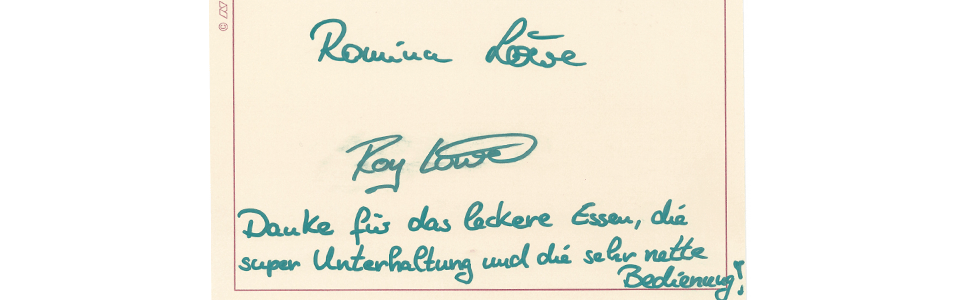 Romina Löwe
Roy Löwe
Danke für das leckere Essen, die
super Unterhaltung und die sehr nette
Bedienung!